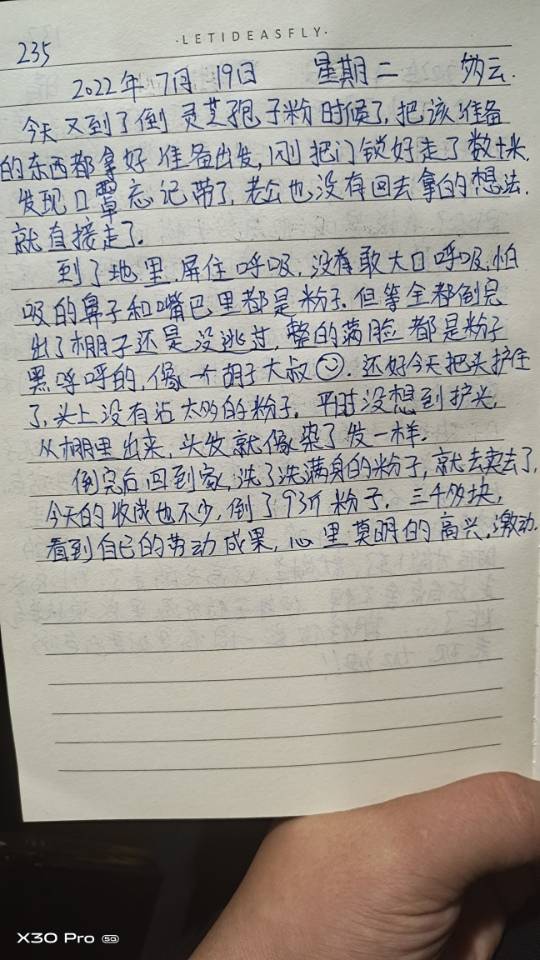 ·LETIDEASFLY·
235
2022年7月19日 星期二 多云.
今天又到了倒灵芝孢子粉时候了,把该准备
的东西都拿好准备出发,刚把门锁好走了数十米,
发现口罩忘记带了,老公也没有回去拿的想法.
就直接走了.
到了地里,屏住呼吸,没有敢大口呼吸,怕
吸的鼻子和嘴巴里都是粉子.但等全都倒完
出了棚子还是没逃过,整的满脸都是粉子
黑呼呼的,像一个胡子大叔☺.还好今天把头护住
了,头上没有沾太多的粉子.平时没想到护头,
从棚里出来,头发就像染了发一样.
倒完后回到家,洗了洗满身的粉子,就去卖去了,
今天的收成也不少,倒了93斤粉子.三千多块,
看到自己的劳动成果,心里莫明的高兴,激动.
X30 Pro 5G